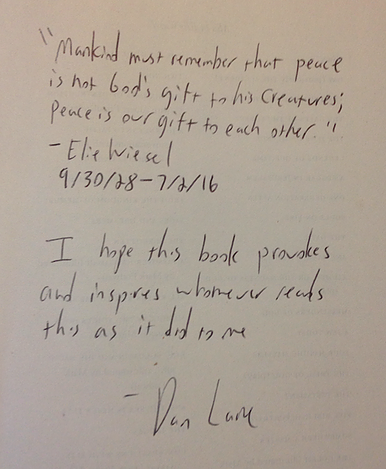 "Mankind must remember that peace
is not God's gift to his creatures;
peace is our gift to each other."
- Elie Wiesel
9/30/28-7/2/16
I hope this book provokes
and inspires whomever reads
this as it did to me
- Dan